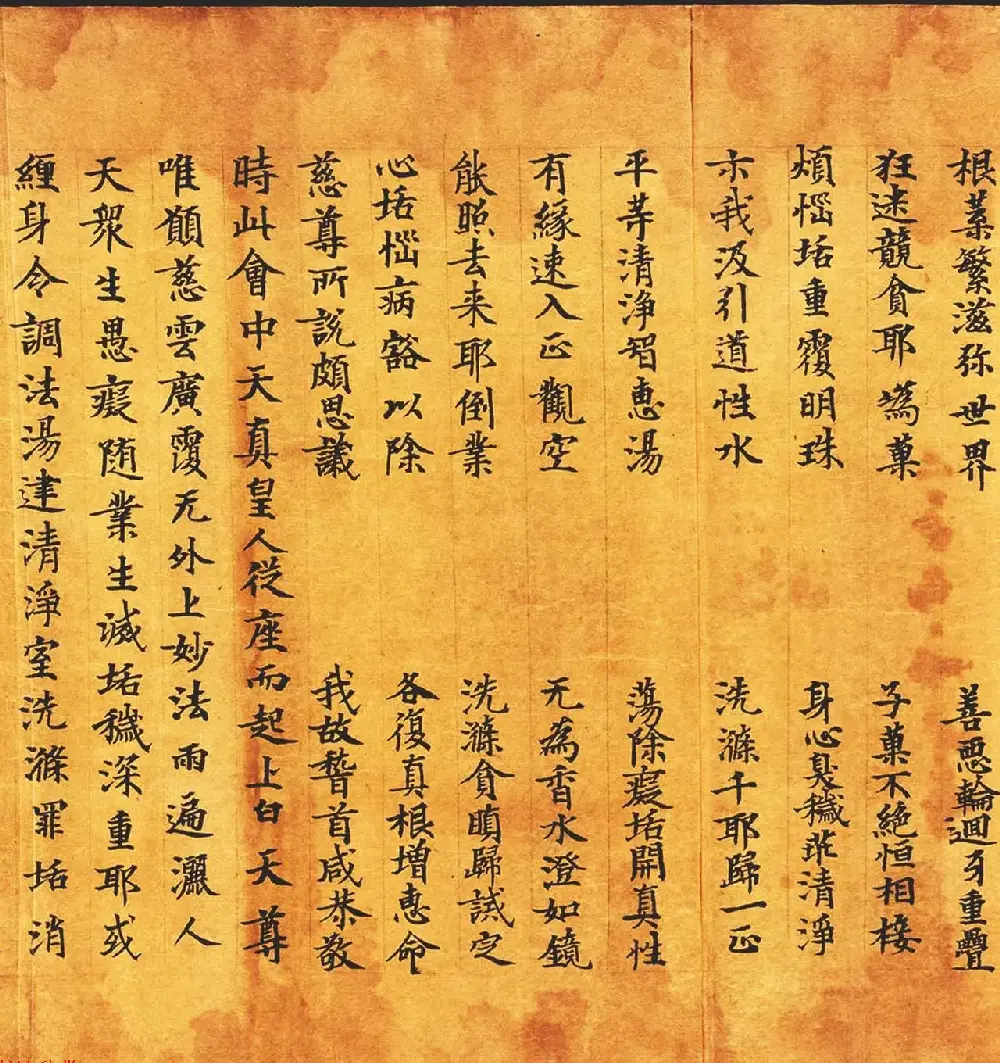 根葉繁滋弥世界 善惡輪迴身重疊
狂迷競貪耶為菓 子菓不絕恒相接
煩惱垢重覆明珠 身心臭穢非清淨
示我汲引道性水 洗滌千耶歸一正
平等清淨智惠湯 蕩除癡垢開真性
有緣速入正觀空 无為香水澄如鏡
能照去来耶倒業 洗滌貪瞋歸誡定
心垢惱病豁以除 各復真根增惠命
慈尊所説頗思議 我故稽首咸恭敬
時此會中天真皇人從座而起上白天尊
唯願慈雲廣覆无外上妙法雨遍灑人
天衆生愚癡随業生滅垢穢深重耶或
纏身令調法湯建清淨室洗滌罪垢消